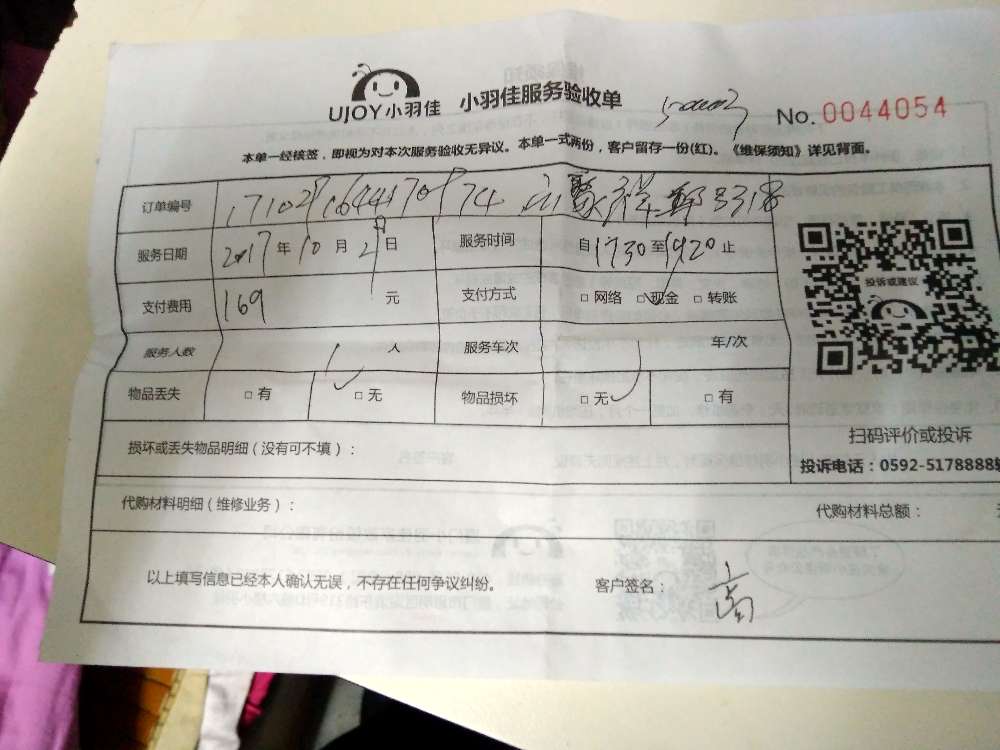 UJOY小羽佳 小羽佳服务验收单 No.0044054
本单一经核签，即视为对本次服务验收无异议。本单一式两份，客户留存一份(红)。《维保须知》详见背面。
订单编号
服务日期 2017年10月29日 服务时间 自1730至1920止
支付费用 169 元 支付方式 □网络 □现金 □转账
服务人数 1 人 服务车次 1 车/次
物品丢失 □有 □无 物品损坏 □无 □有
投诉或建议
扫码评价或投诉
投诉电话：0592-5178888转
损坏或丢失物品明细（没有可不填）：
代购材料明细（维修业务）： 代购材料总额：
以上填写信息已经本人确认无误，不存在任何争议纠纷。 客户签名：高